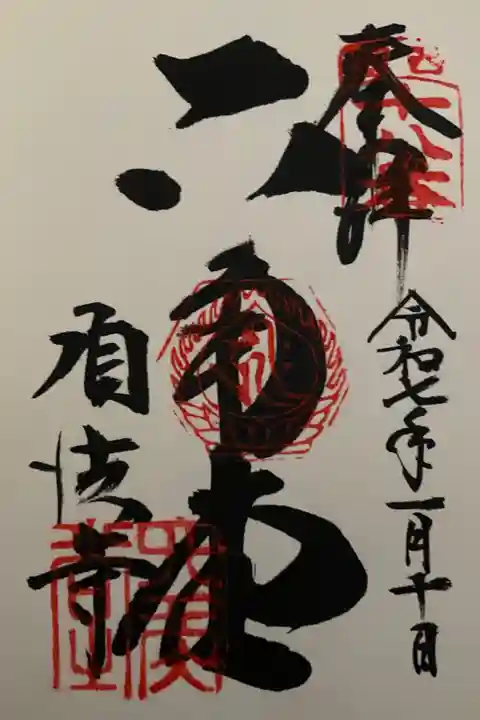 奉拝
令和七年一月十日
六角堂
頂法寺